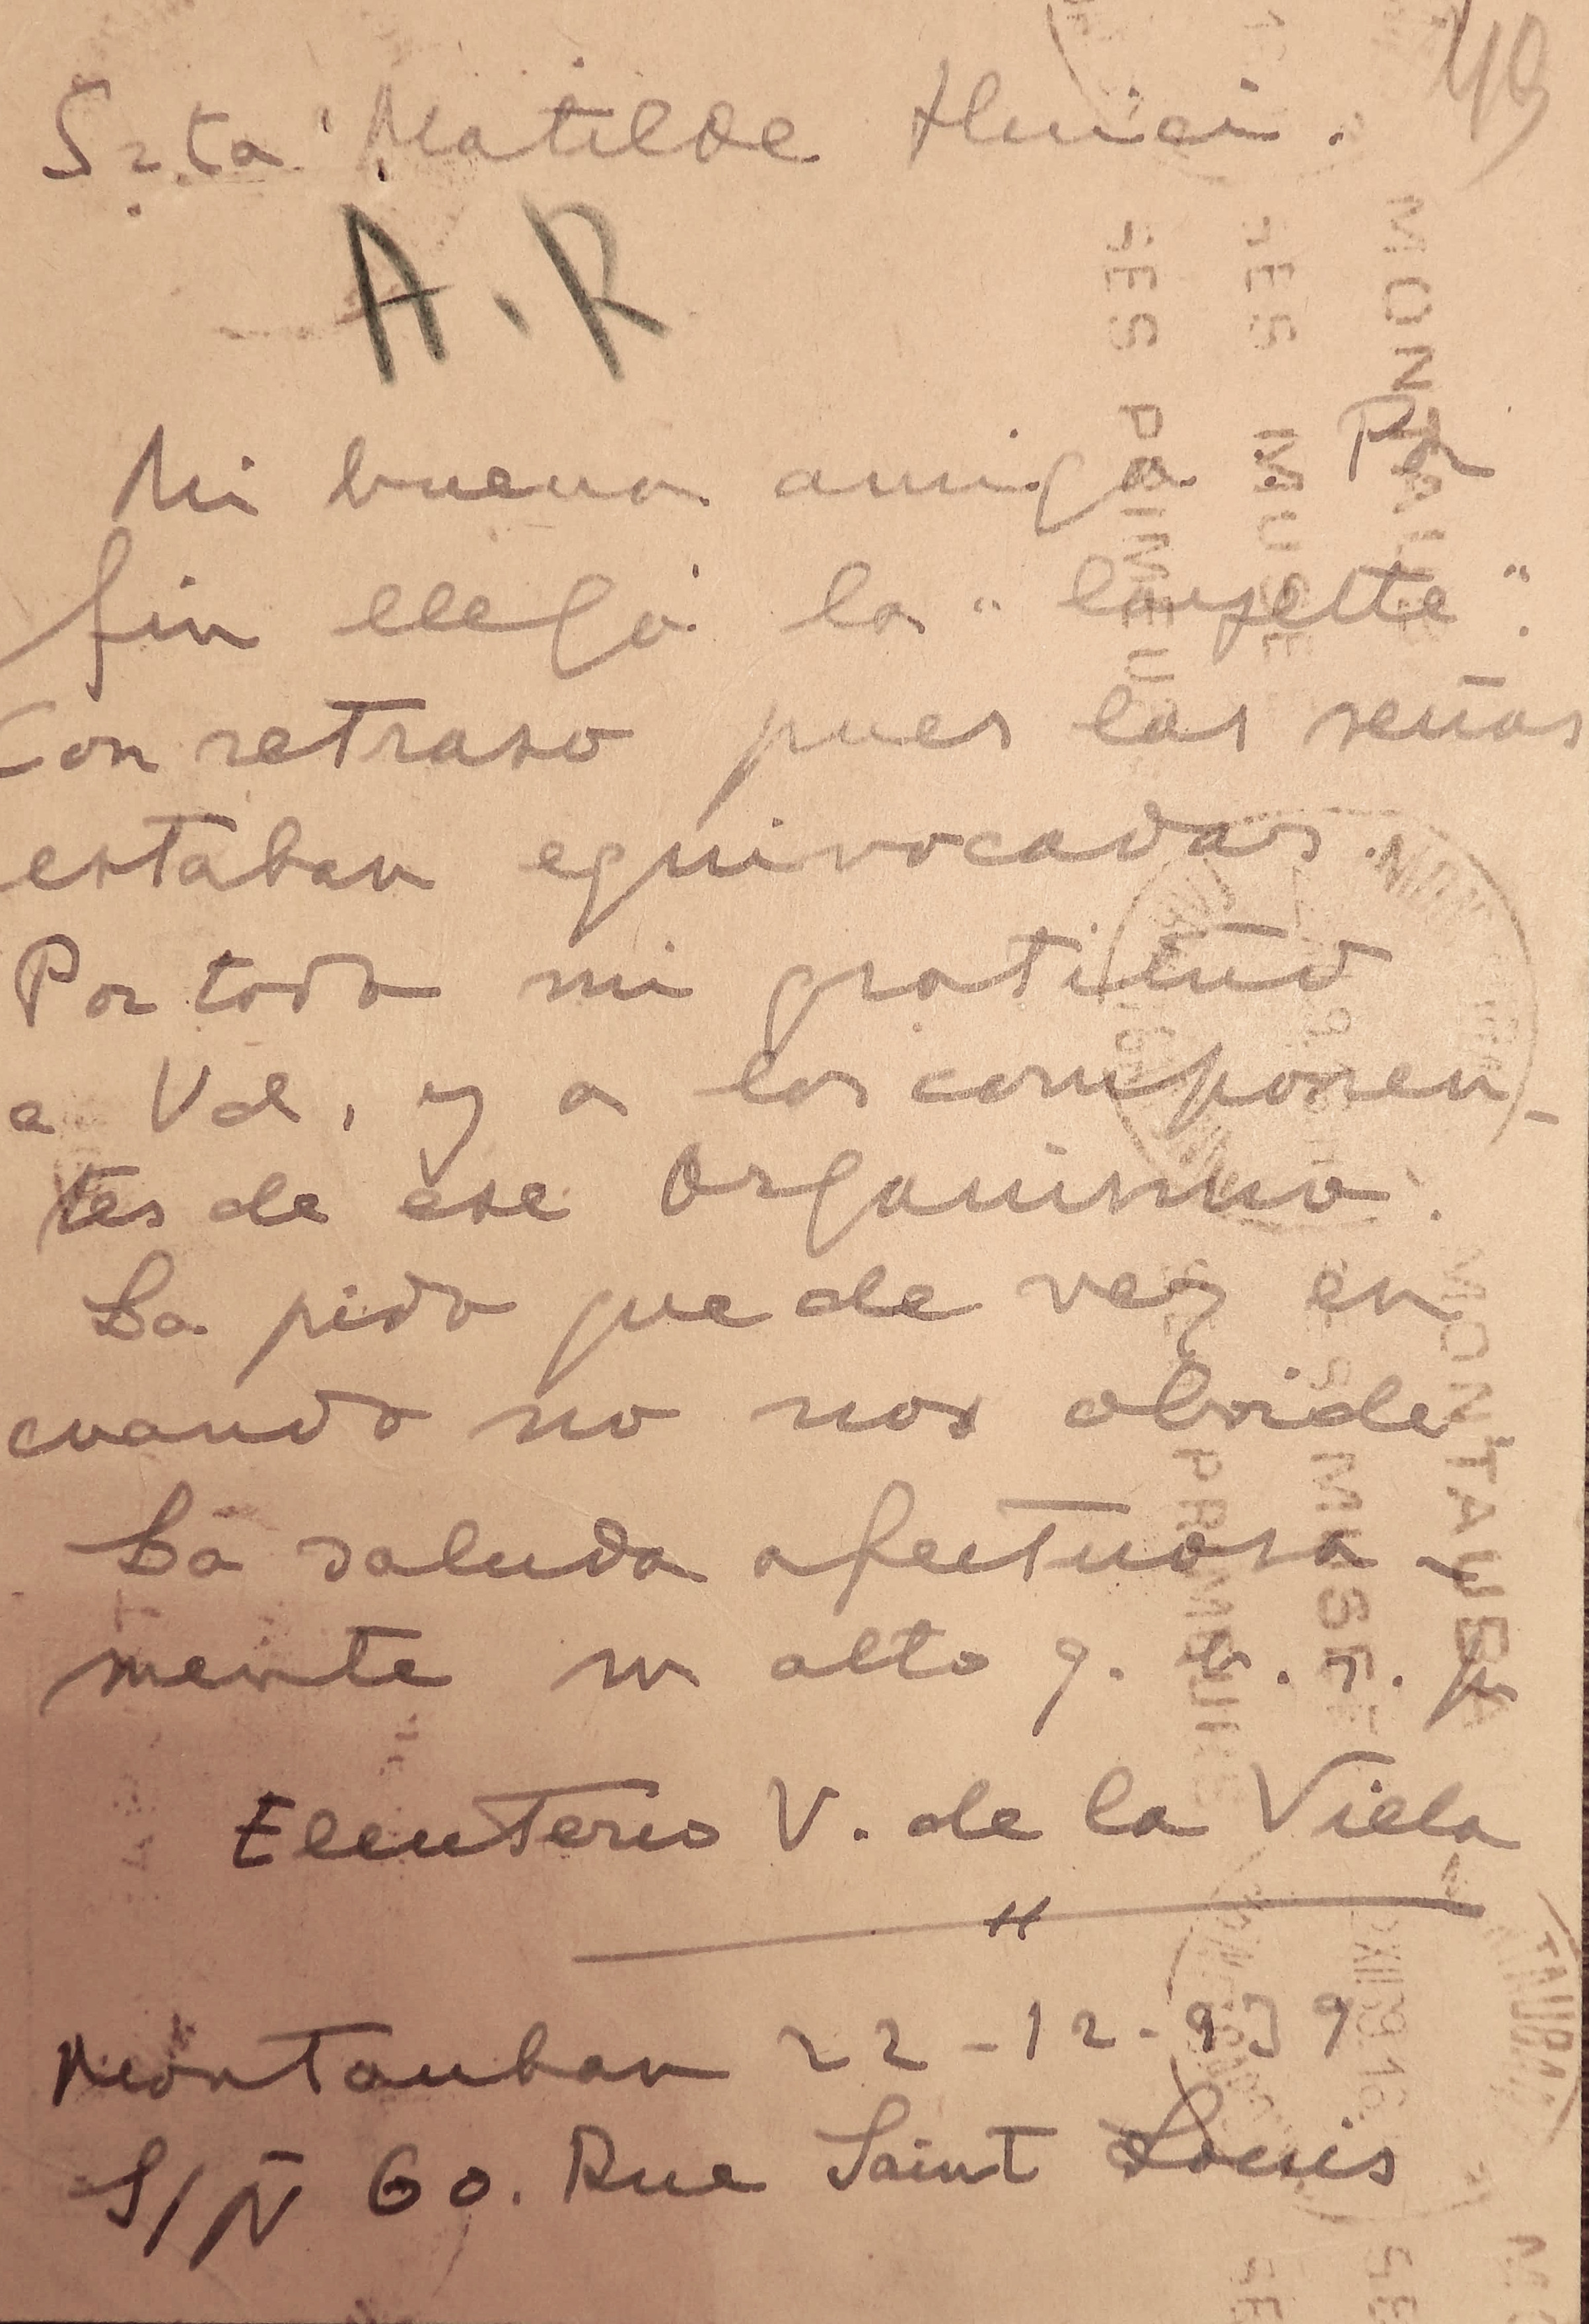 49
Srta Matilde Huici.
A.R
Mi buena amiga Por
fin llegó la "layette".
Con retraso pues las señas
estaban equivocadas.
Por toda mi gratitud
a Vd, y a los componen-
tes de ese Organismo.
La pido que de vez en
cuando no nos olvide
La saluda afectuosa-
mente su afto q. e. s. p.
Eleuterio V. de la Villa
Montauban 22-12-939
S/Ñ 60. Rue Saint Louis
MONTAUBAN
SES MUSEE
SES PRIMEU
MONTAUBA
SES MUSEE
SES PRIMEU